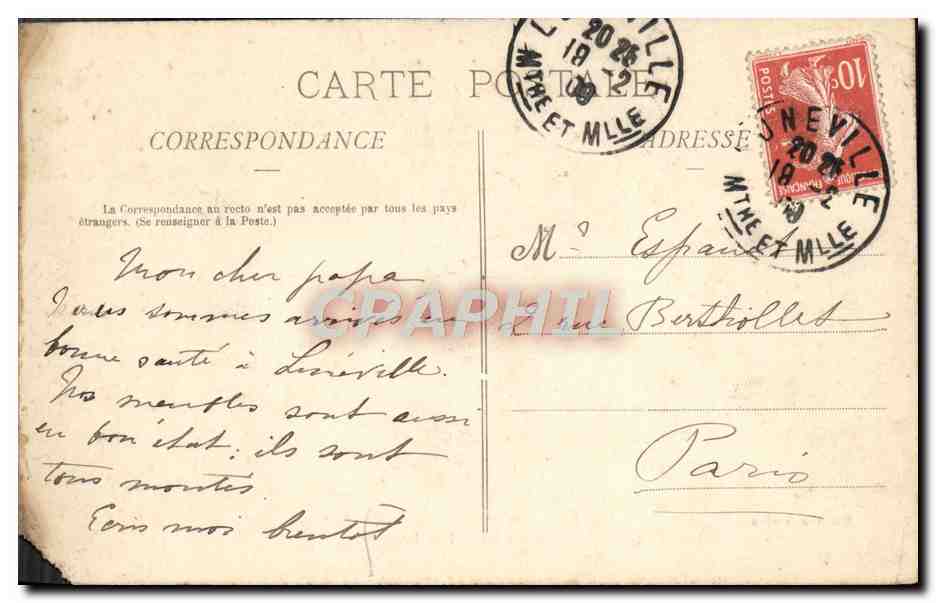 CARTE POSTALE
CORRESPONDANCE
La Correspondance au recto n'est pas acceptée par tous les pays
étrangers. (Se renseigner à la Poste.)
Mon cher papa
Nous sommes arrivés en
bonne santé à Lunéville.
Nos meubles sont aussi
en bon état; ils sont
tous montés.
Ecris moi bientôt
ADRESSE
Mr Espanet
2 rue Berthollet
Paris
LUNEVILLE
20 25
18 2
09
MTHE ET MLLE
10c
POSTES
IQUE FRANÇAISE
UNEVILLE
20 25
18 2
09
MTHE ET MLLE
CPAPHIL